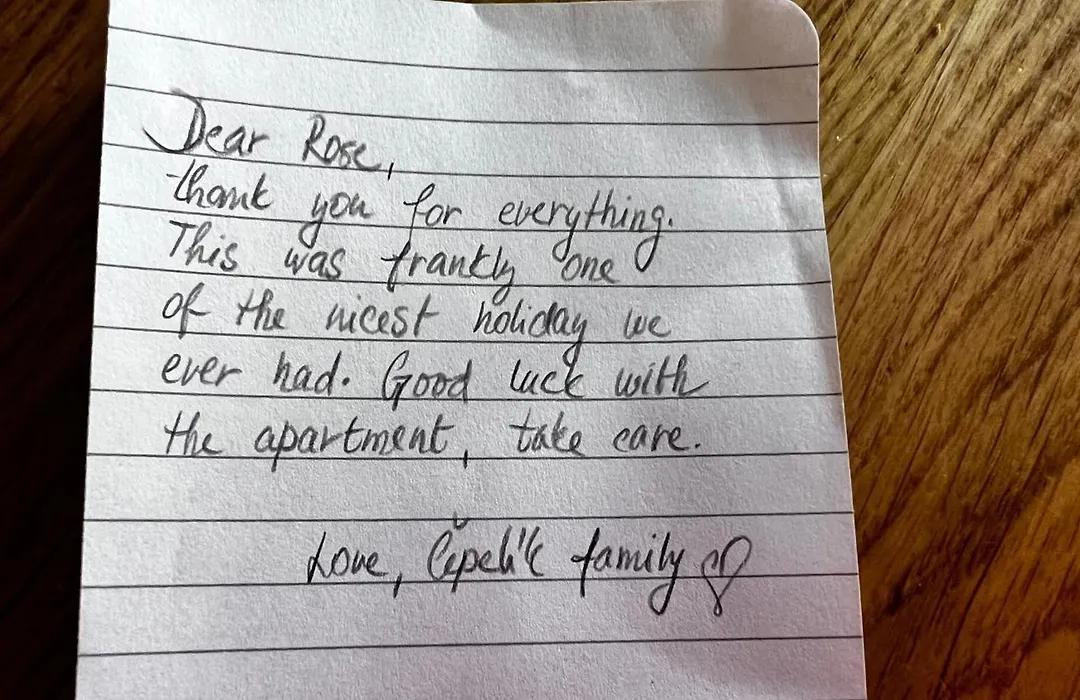 Dear Rose,
thank you for everything.
This was frankly one
of the nicest holiday we
ever had. Good luck with
the apartment, take care.
Love, Čepelík family ♡